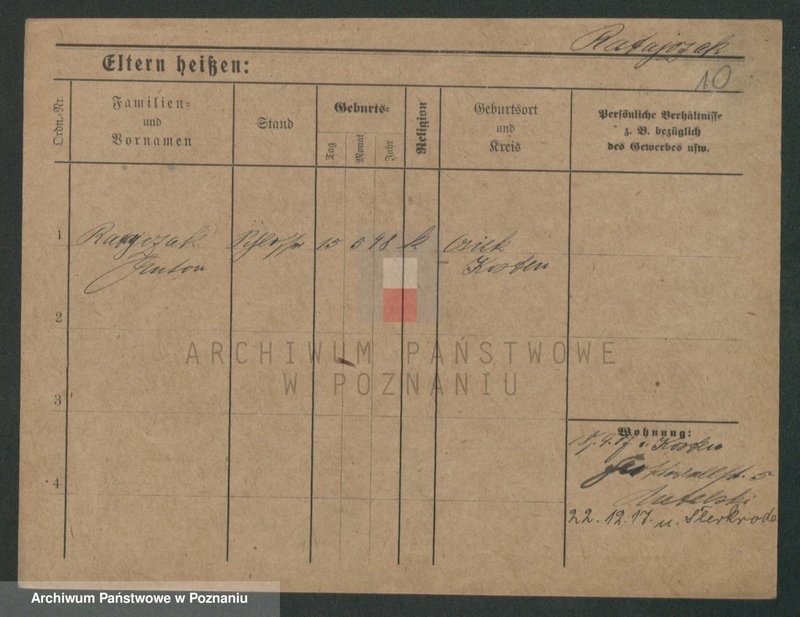 Ratajczak
10
Eltern heißen:
Ordn.-Nr.
Familien-
und
Vornamen
Stand
Geburts-
Tag
Monat
Jahr
Religion
Geburtsort
und
Kreis
Persönliche Verhältnisse
z. B. bezüglich
des Gewerbes usw.
1
Ratajczak Schlosser 15 5 98 k
Anton Kosten
2
ARCHIWUM PAŃSTWOWE
W POZNANIU
3
Wohnung:
Kosten
4
22.12.17. u. Sterkrade
Archiwum Państwowe w Poznaniu